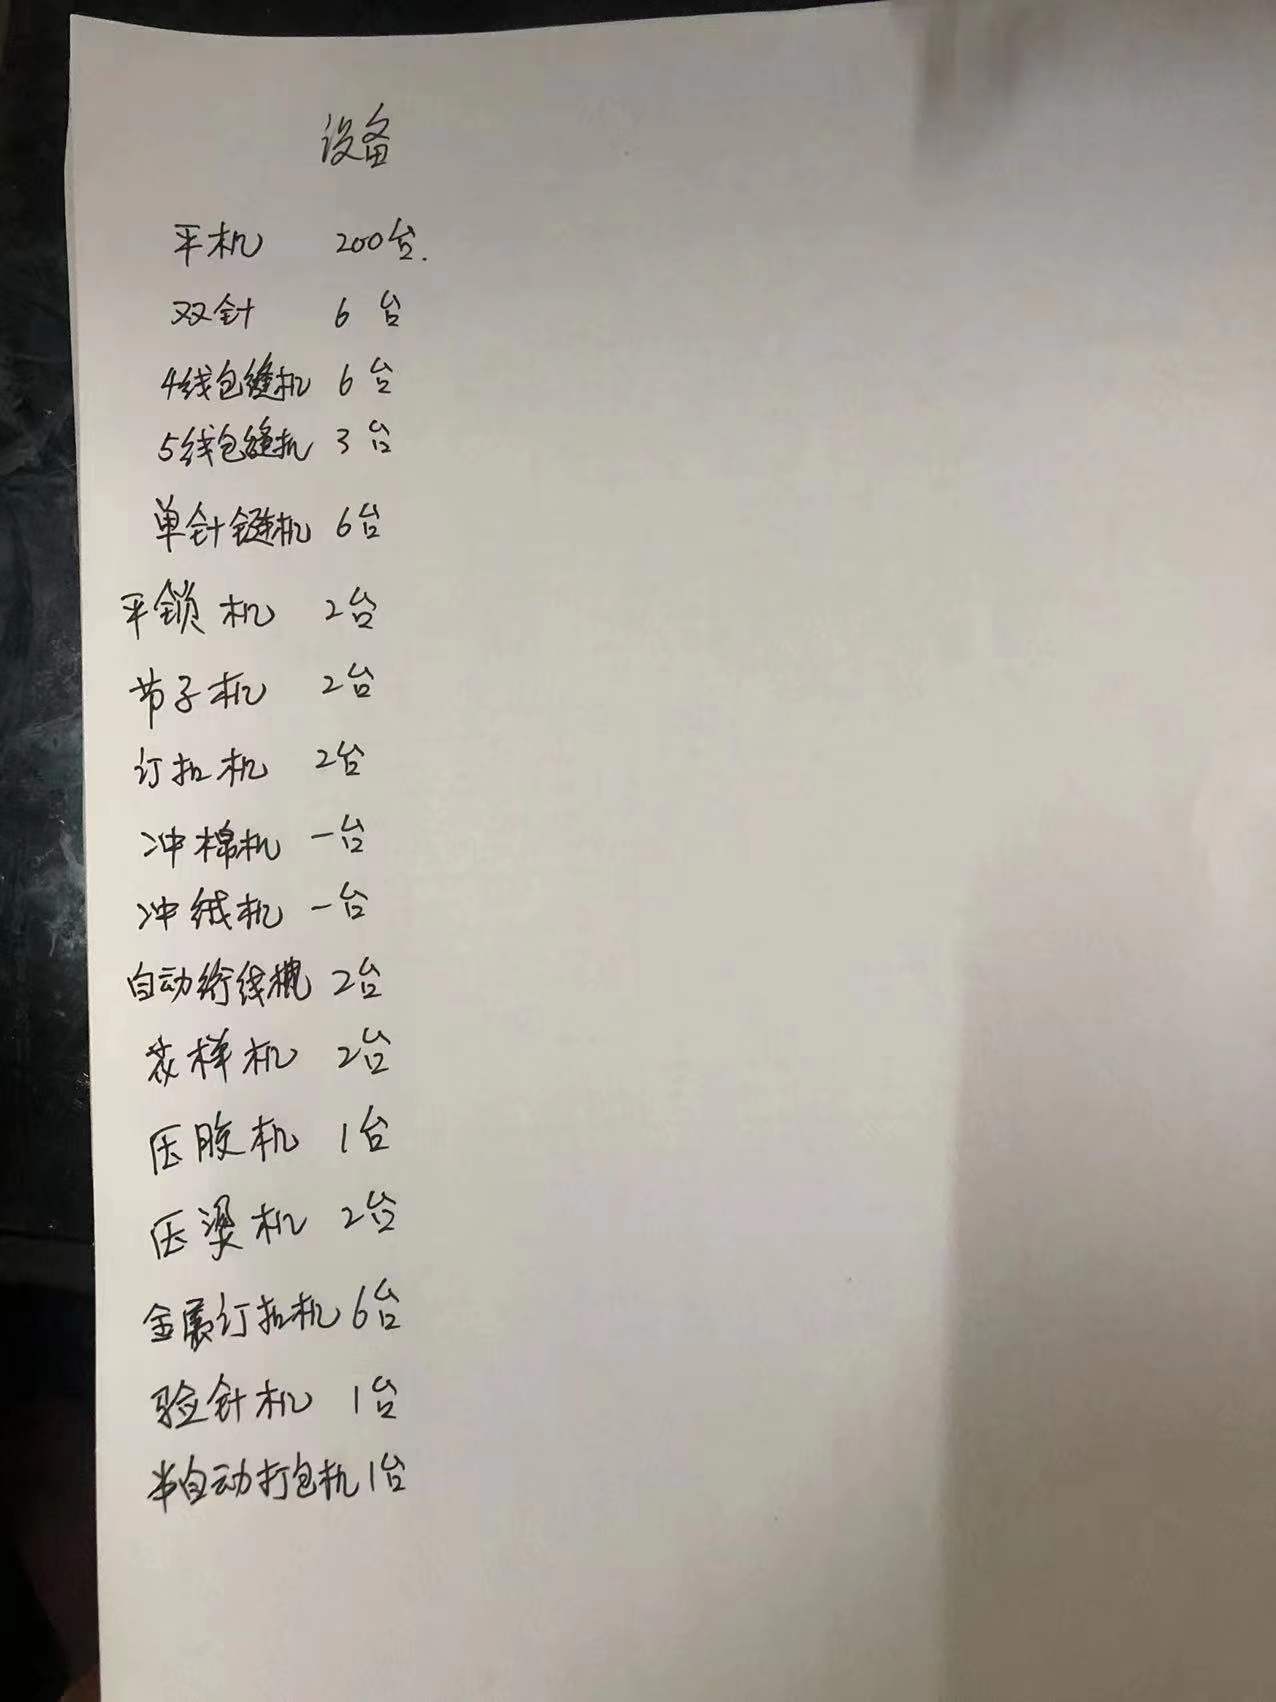 设备
平机 200台.
双针 6台
4线包缝机 6台
5线包缝机 3台
单针键机 6台
平锁机 2台
节子机 2台
订扣机 2台
冲棉机 一台
冲绒机 一台
自动绗线机 2台
花样机 2台
压胶机 1台
压烫机 2台
金属订扣机 6台
验针机 1台
半自动打包机 1台